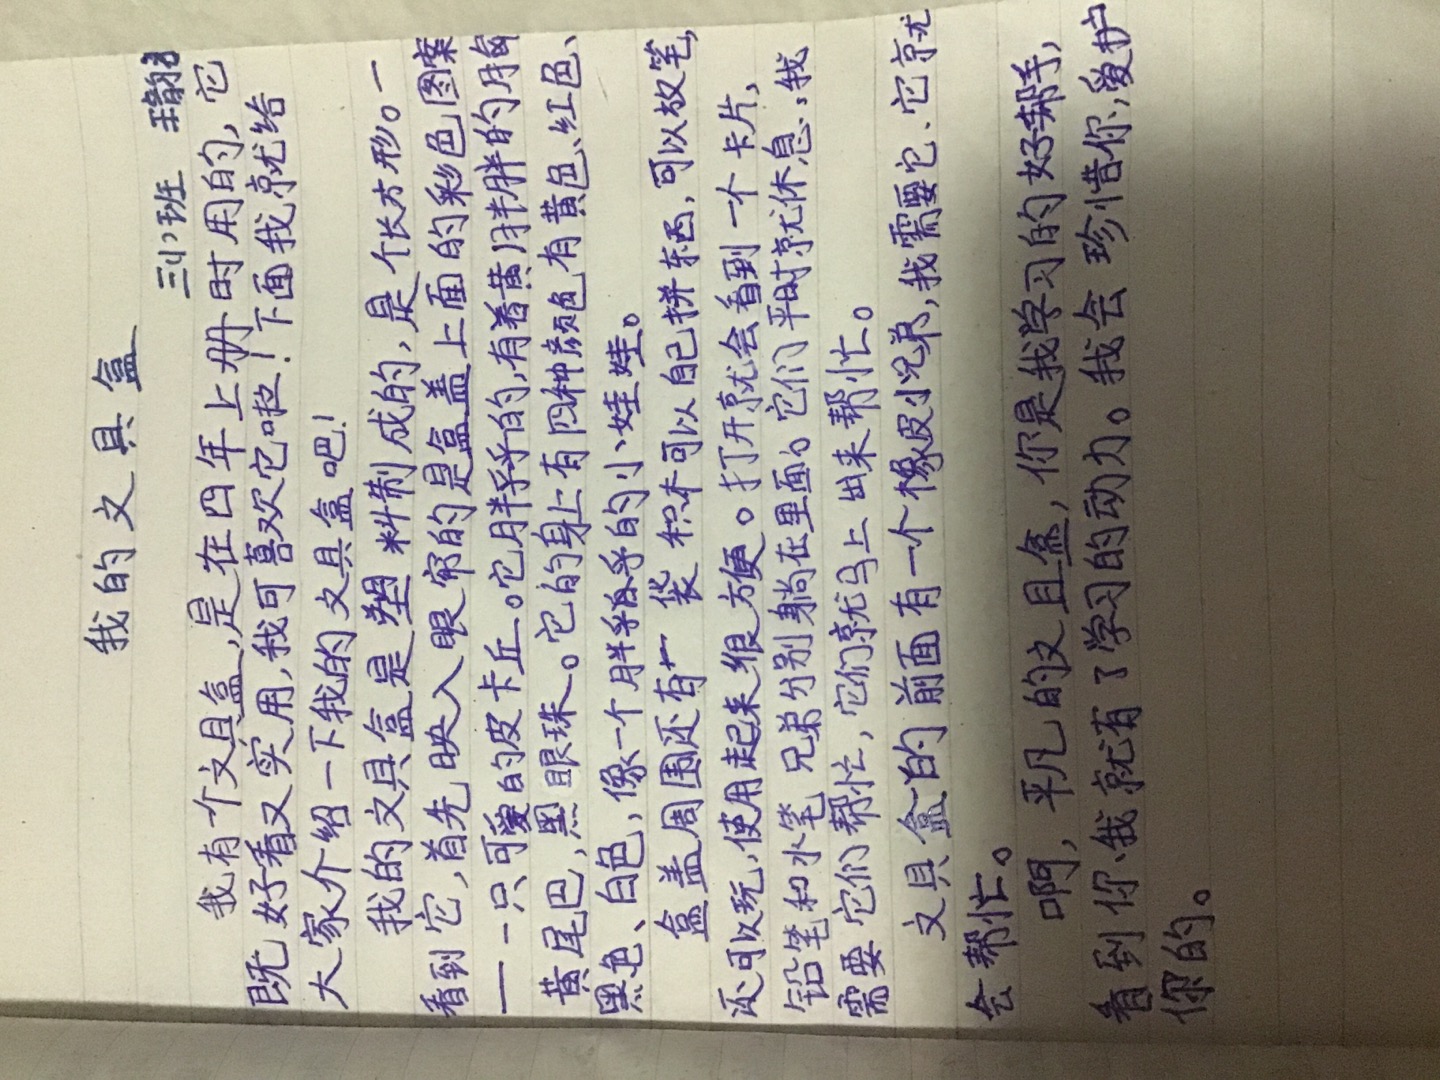 我的文具盒
三(1)班
我有个文具盒,是在四年上册时用的,它
既好看又实用,我可喜欢它啦!下面我就给
大家介绍一下我的文具盒吧!
我的文具盒是塑料制成的,是个长方形。一
看到它,首先映入眼帘的是盒盖上面的彩色图案
——一只可爱的皮卡丘。它胖乎乎的,有着黄胖胖的
黄尾巴,黑眼珠。它的身上有四种颜色有黄色、红色、
黑色、白色,像一个胖乎乎的小娃娃。
盒盖周围还有一袋积木可以自己拼东西,可以放笔,
还可以玩,使用起来很方便。打开就会看到一个卡片,
铅笔和水笔兄弟分别躺在里面。它们平时就休息,我
需要它们帮忙,它们就马上出来帮忙。
文具盒的前面有一个橡皮小兄弟,我需要它、它就
会帮忙。
啊,平凡的文具盒,你是我学习的好帮手,
看到你、我就有了学习的动力。我会珍惜你,爱护
你的。